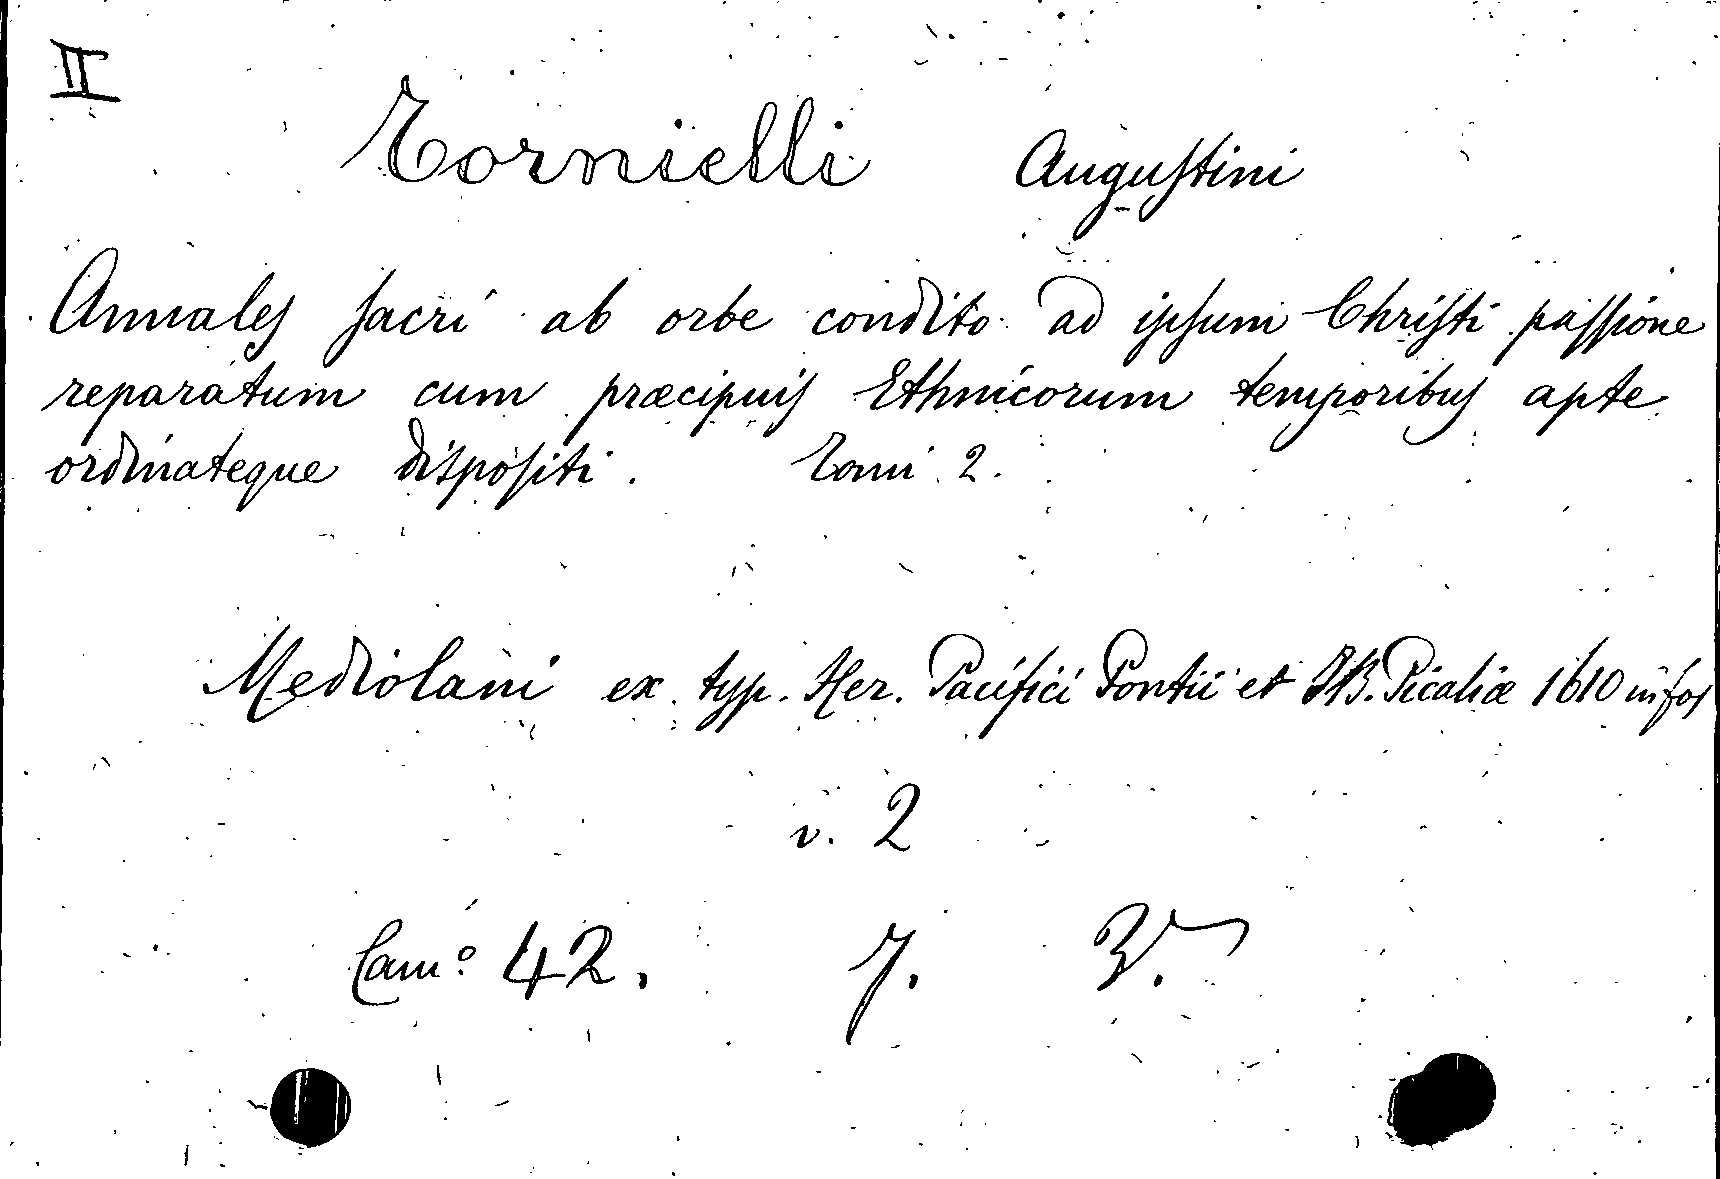 II
Tornielli Augustini
Annales sacri ab orbe condito ad ipsum Christi passione
reparatum cum præcipuis Ethnicorum temporibus apte
ordinateque dispositi. Tomi 2.
Mediolani ex typ. Her. Pacifici Pontii et JB. Picaliæ 1610 in fol
v. 2
Cam.º 42. 7. 3.